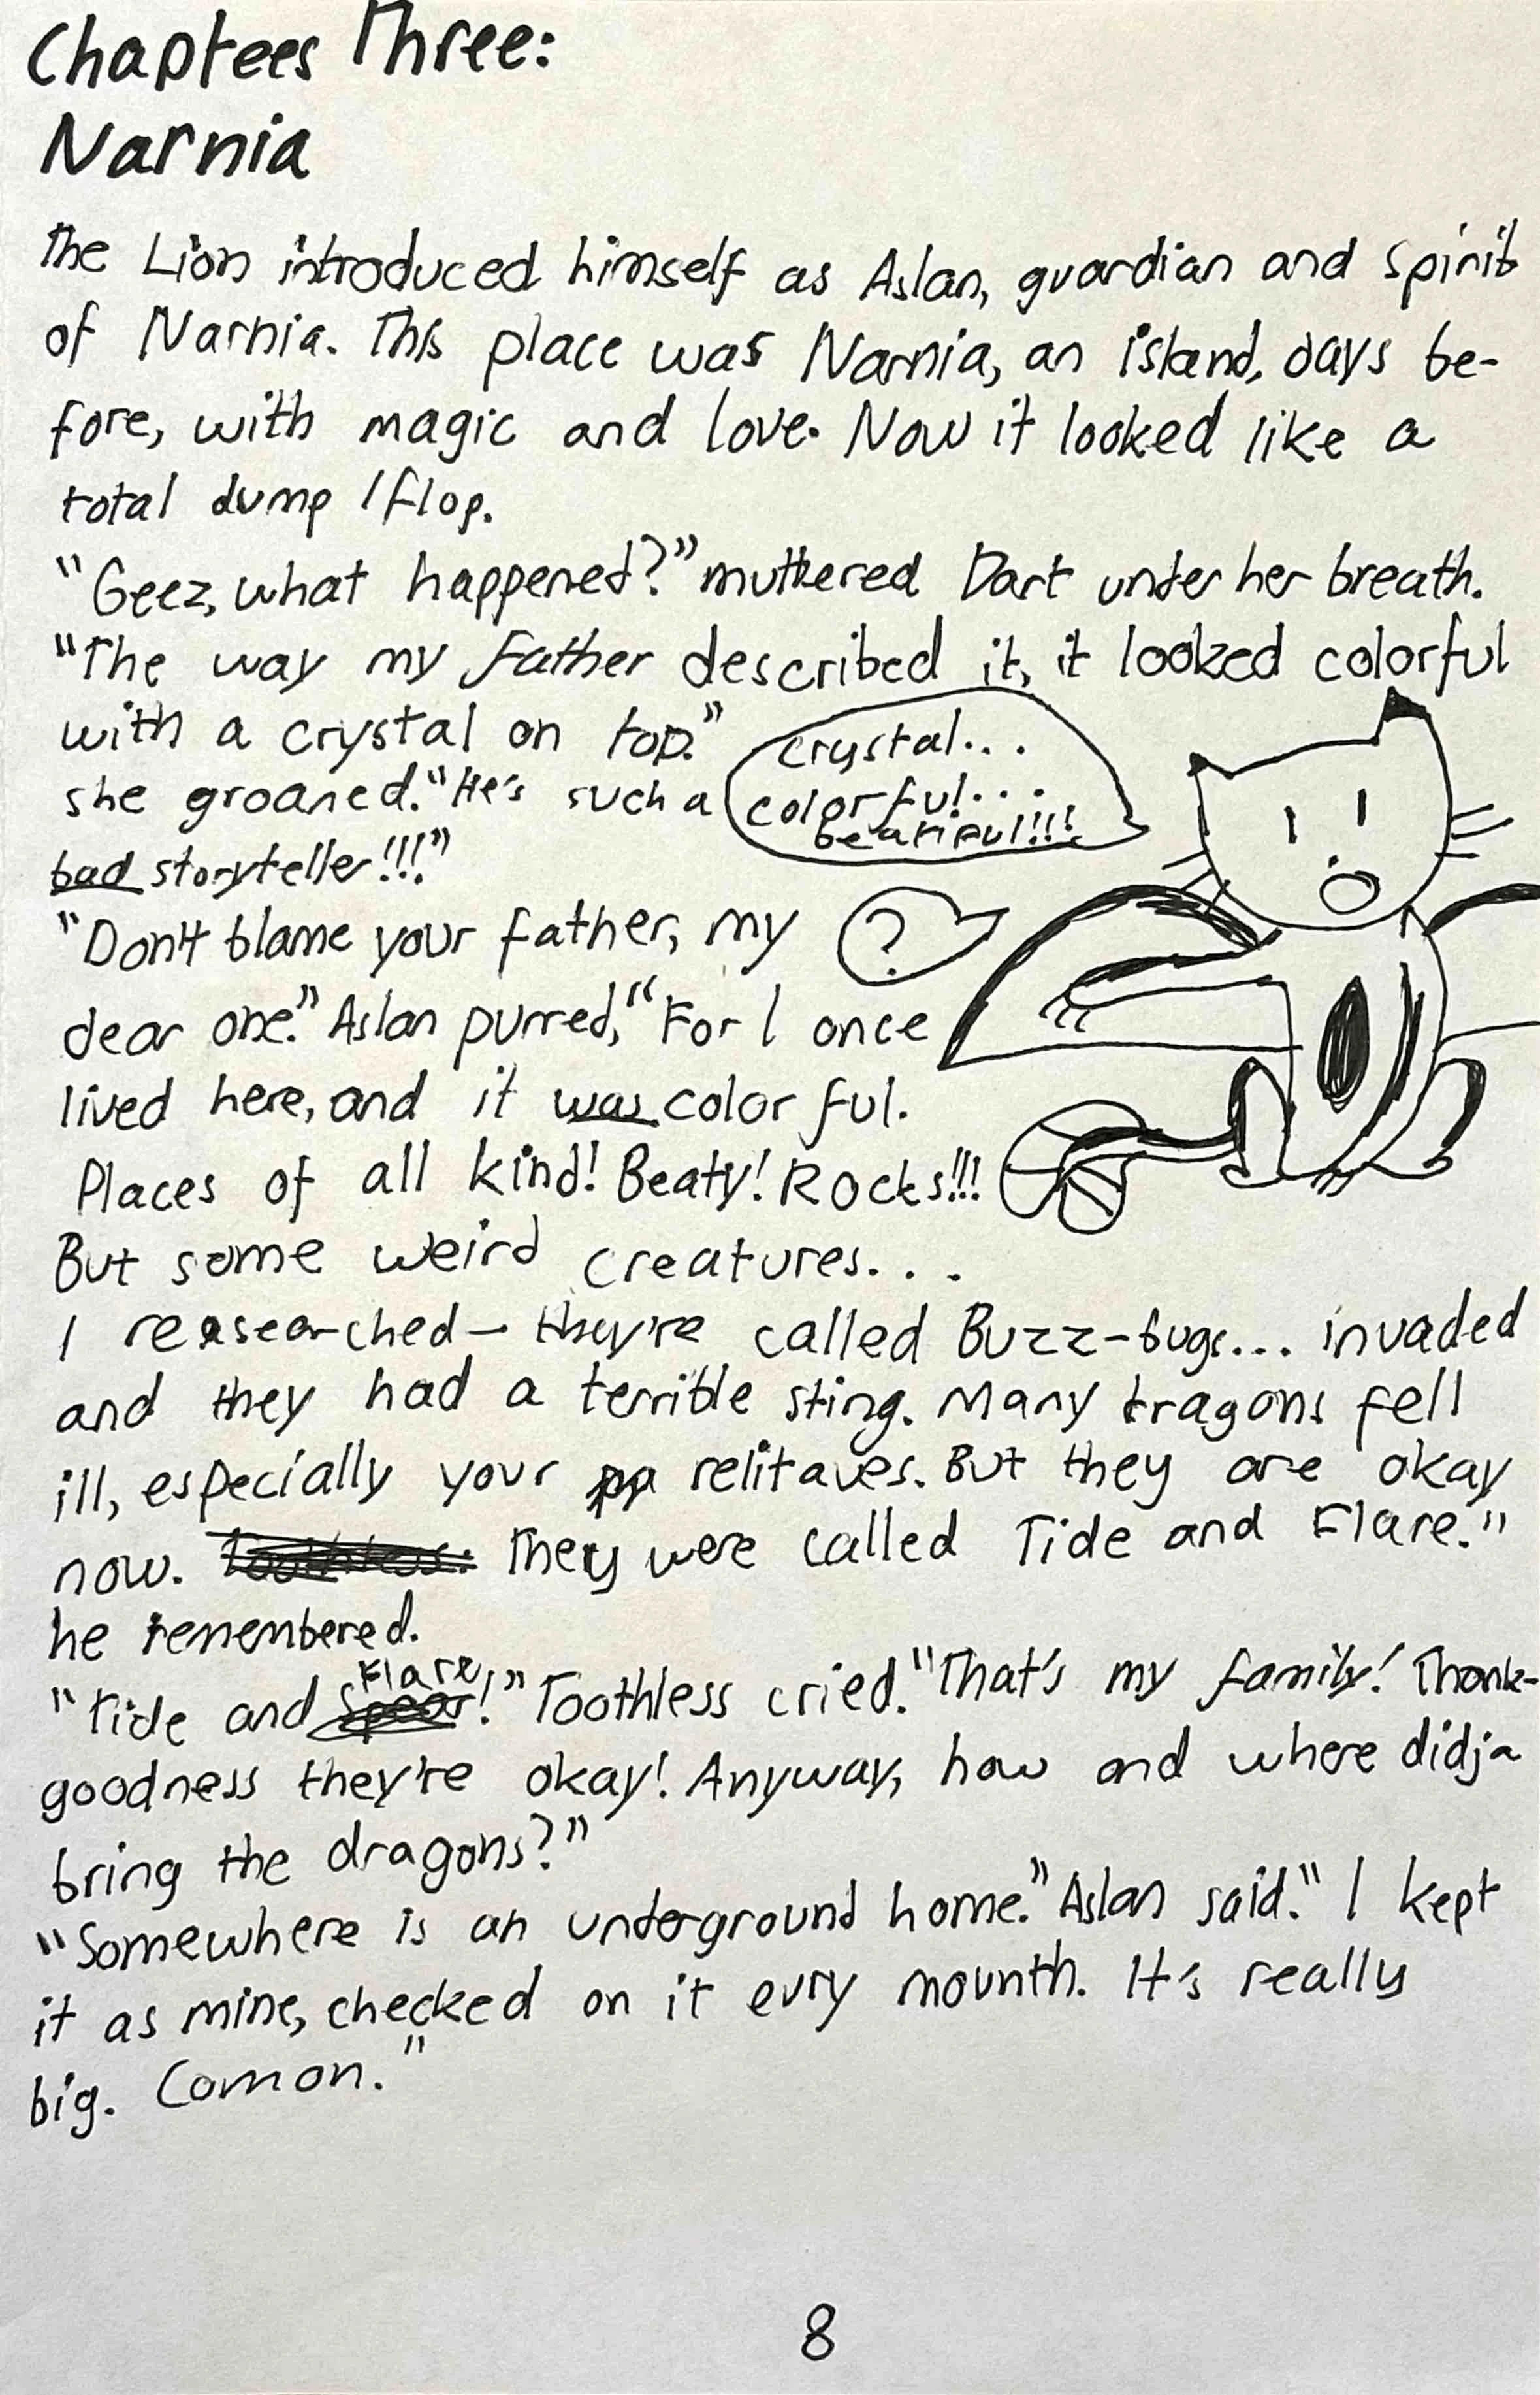 Chaptees Three:
Narnia
The Lion introduced himself as Aslan, guardian and spirit
of Narnia. This place was Narnia, an island, days be-
fore, with magic and love. Now it looked like a
total dump/flop.
"Geez, what happened?" muttered Dart under her breath.
"The way my father described it, it looked colorful
with a crystal on top."
she groaned. "He's such a
bad storyteller!!!"
crystal...
colorful...
beatiful!!!
"Don't blame your father, my
?
dear one." Aslan purred, "For I once
lived here, and it was color ful.
Places of all kind! Beaty! Rocks!!!
But some weird creatures...
I reasearched - they're called Buzz-bugs... invaded
and they had a terrible sting. Many dragons fell
ill, especially your relitaves. But they are okay
now. They were called Tide and Flare."
he remembered.
"Tide and Flare!" Toothless cried. "That's my family! Thank-
goodness they're okay! Anyway, how and where didja
bring the dragons?"
"Somewhere is an underground home." Aslan said. "I kept
it as mine, checked on it evry mounth. It's really
big. Comon."
8